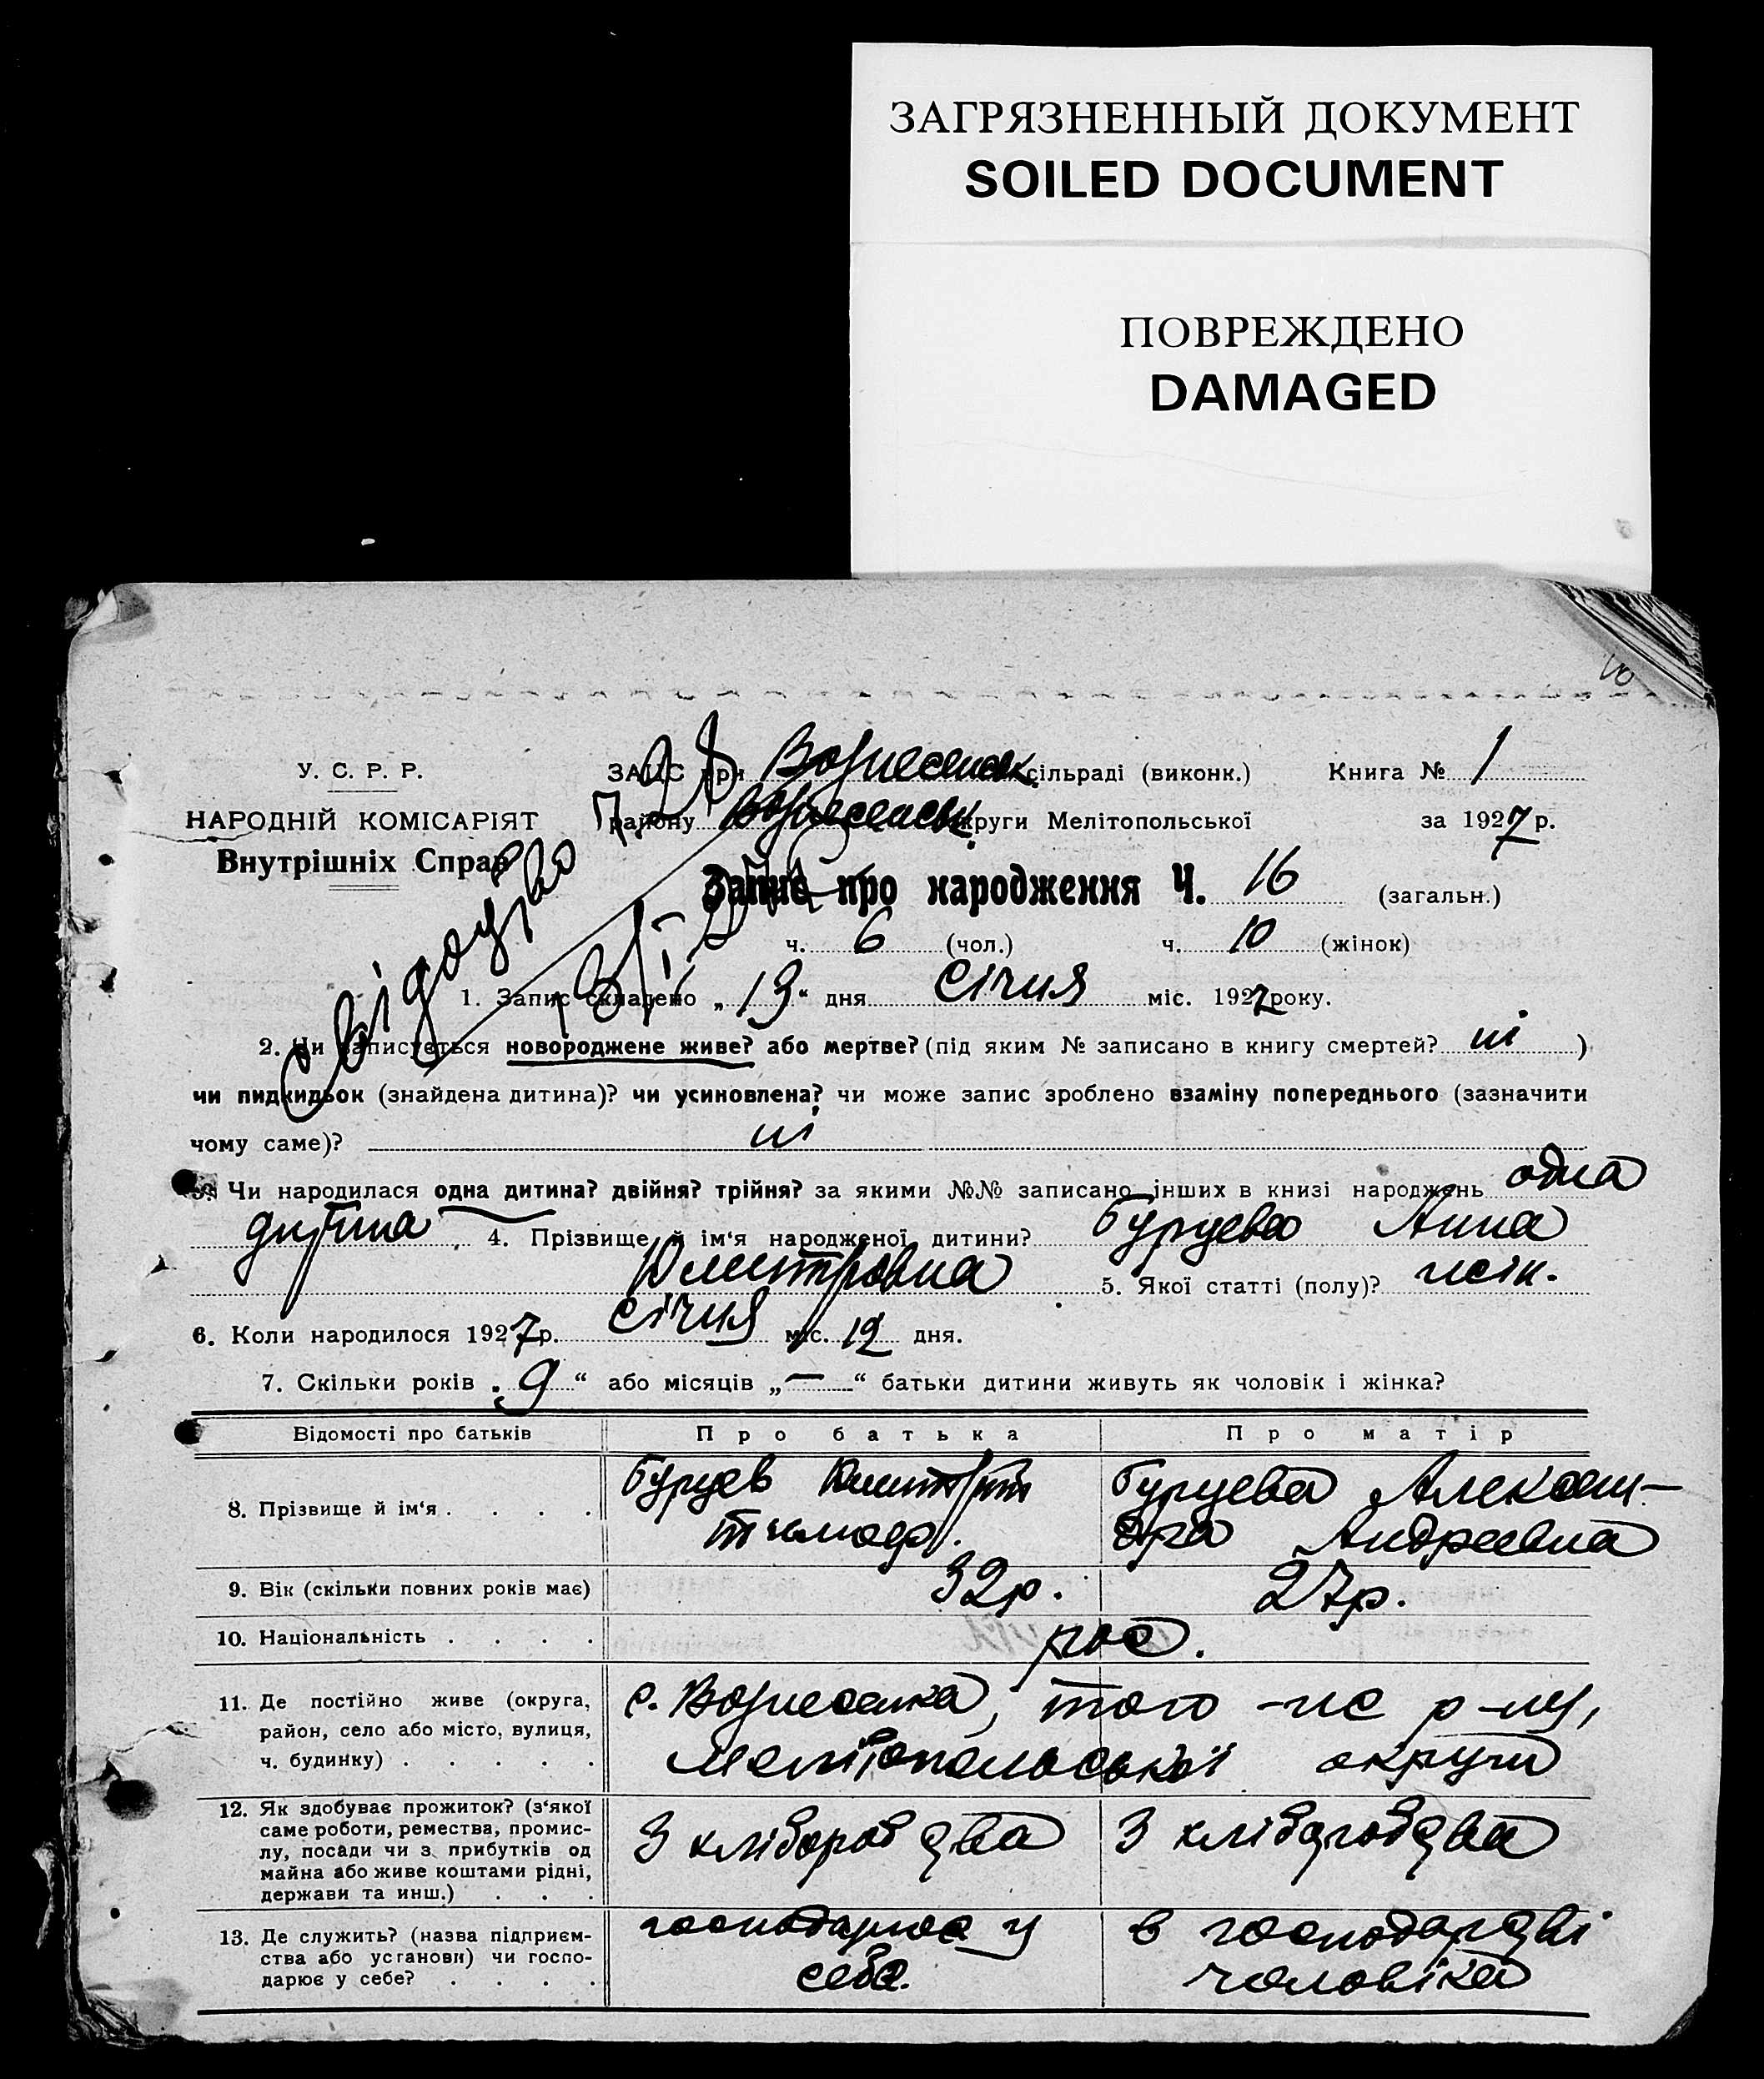 ЗАГРЯЗНЕННЫЙ ДОКУМЕНТ
SOILED DOCUMENT
ПОВРЕЖДЕНО
DAMAGED
У. С. Р. Р.
НАРОДНІЙ КОМІСАРІЯТ
Внутрішніх Справ
ЗАГС при Вознесенськ. сільраді (виконк.) Книга № 1
району Вознесенськ. округи Мелітопольської за 1927 р.
Запис про народження Ч. 16 (загальн.)
ч. 6 (чол.) ч. 10 (жінок)
1. Запис складено „19“ дня Січня міс. 1927 року.
2. Чи записується новороджене живе? або мертве? (під яким № записано в книгу смертей? ні )
чи пидкидьок (знайдена дитина)? чи усиновлена? чи може запис зроблено взаміну попереднього (зазначити
чому саме)? ні
3. Чи народилася одна дитина? двійня? трійня? за якими №№ записано інших в книзі народжень одна
дитина 4. Прізвище й ім‘я народженої дитини? Бурцева Анна
Дмитровна 5. Якої статті (полу)? жін.
6. Коли народилося 1927 р. Січня міс. 12 дня.
7. Скільки років „9“ або місяців „—“ батьки дитини живуть як чоловік і жінка?
Відомості про батьків Про батька Про матір
8. Прізвище й ім‘я . . . . Бурцев Дмитрій Тимоф. Бурцева Алексан-
дра Андреевна
9. Вік (скільки повних років має) 32 р. 27 р.
10. Національність . . . . рос.
11. Де постійно живе (округа,
район, село або місто, вулиця,
ч. будинку) . . . . .
с. Вознесенка, того-же р-ну,
Мелітопольської округи
12. Як здобуває прожиток? (з‘якої
саме роботи, ремества, промис-
лу, посади чи з прибутків од
майна або живе коштами рідні,
держави та инш.) . . .
З хліборобства З хліборобства
13. Де служить? (назва підприєм-
ства або установи) чи госпо-
дарює у себе? . . . .
господарює у
себе.
в господарстві
чоловіка